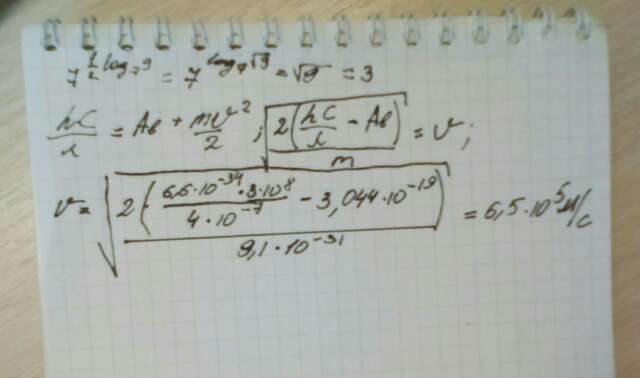 7^{\frac{1}{2} log_7 9} = 7^{log_7 √9} = √9 = 3
\frac{hC}{λ} = Aв + \frac{mv^2}{2} ; \sqrt{\frac{2(\frac{hC}{λ} - Aв)}{m}} = v ;
v = \sqrt{\frac{2 · (\frac{6,6·10^{-34}·3·10^8}{4·10^{-7}} - 3,044·10^{-19})}{9,1·10^{-31}}} = 6,5·10^5 м/с